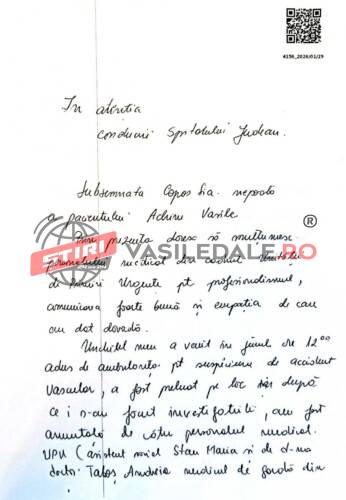 4156_2026/01/29
In atenția
conducerii Spitalului Județean.
Subsemnata Copos Lia nepoata
a pacientului Achim Vasile
Prin prezenta doresc să mulțumesc
personalului medical din cadrul
de Primiri Urgente pt profesionalismul,
comunicarea foarte bună și empatia de care
au dat dovadă.
Unchiul meu a venit în jurul ore 12:00
adus de ambulanța pt suspiciune de accident
vascular, a fost preluat pe loc iar după
ce i s-au facut investigatiile, am fost
anuntată de către personalul medical
UPU (asistent sosiel Stan Maria și de d-na
doctor Taloș Andreia medicul de gardă din
STIRI
VASILEDALE.RO
®